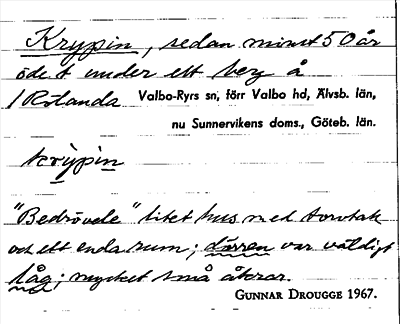 Krypin, sedan minst 50 år
öde t under ett berg å
/Rölanda Valbo-Ryrs sn, förr Valbo hd, Älvsb. län,
nu Sunnervikens doms., Göteb. län.
krỳpin
"Bedrövele" litet hus med torvtak
och ett enda rum; dörren var väldigt
låg; mycket små åkrar.
GUNNAR DROUGGE 1967.